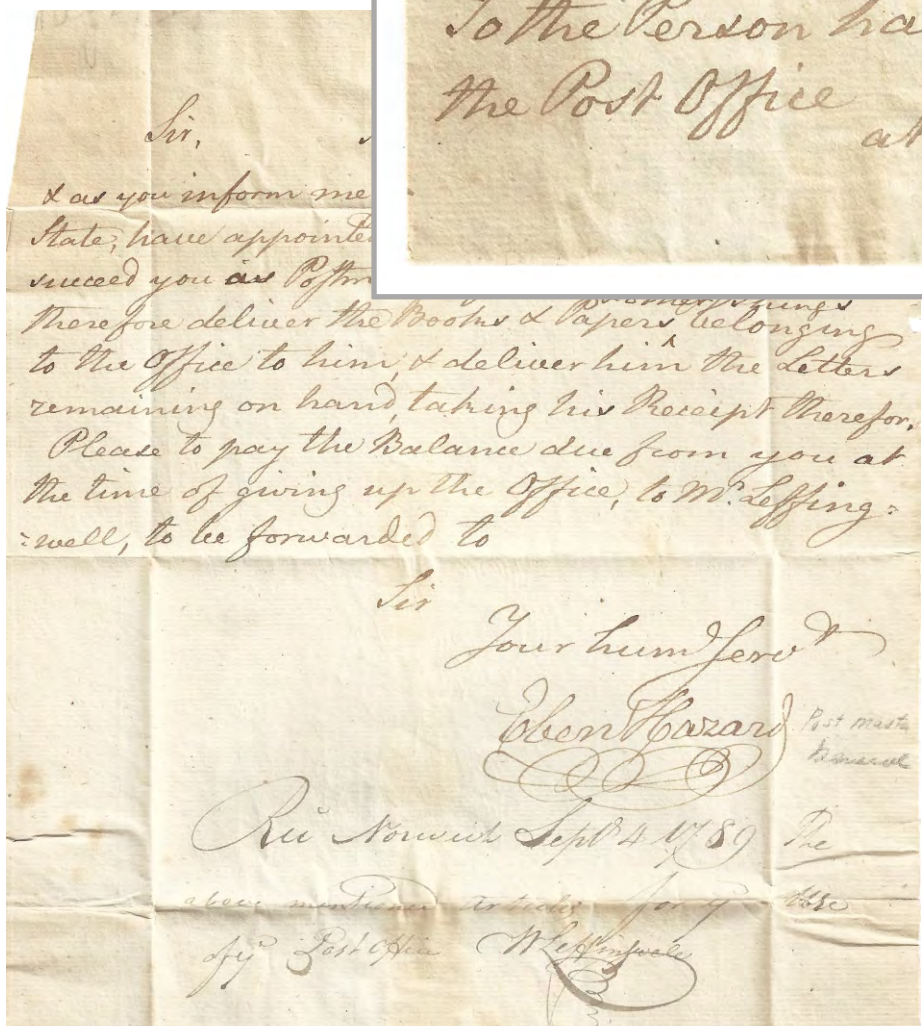 To the Person ha
the Post Office
at
Sir,
& as you inform me
State, have appointe
succeed you as Postm
& other Things
therefore deliver the Books & Papers belonging
to the Office to him, & deliver him the Letters
remaining on hand, taking his Receipt therefor.
Please to pay the Balance due from you at
the time of giving up the Office, to Mr. Leffing=
=well, to be forwarded to
Sir
Your humd. Servt
Eben Hazard
Post Maste
General
Rec Norwich Septr 4 1789 The
above mentioned articles for ye Use
of ye Post Office W Leffingwell